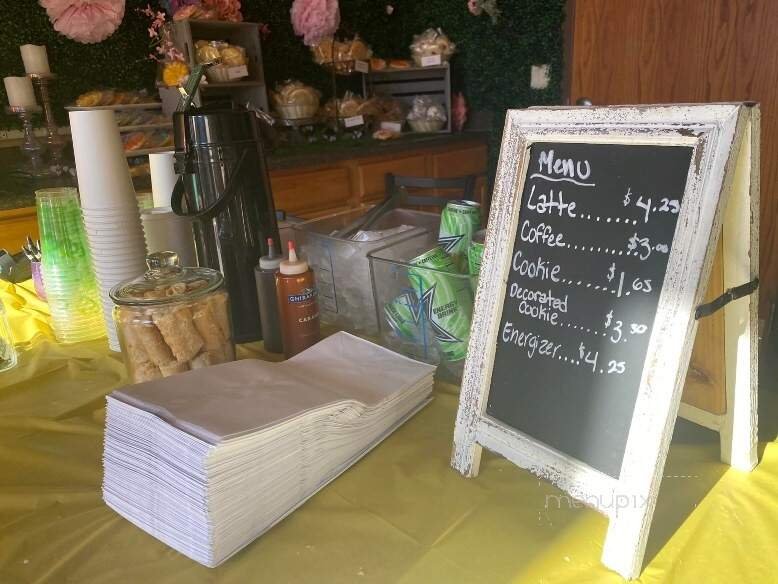 Menu
Latte.......$4.25
Coffee.........$3.00
Cookie......$1.65
Decorated
Cookie......$3.50
Energizer....$4.25
GHIRARDELLI
CARAMEL
ENERGY
DRINK
menupix